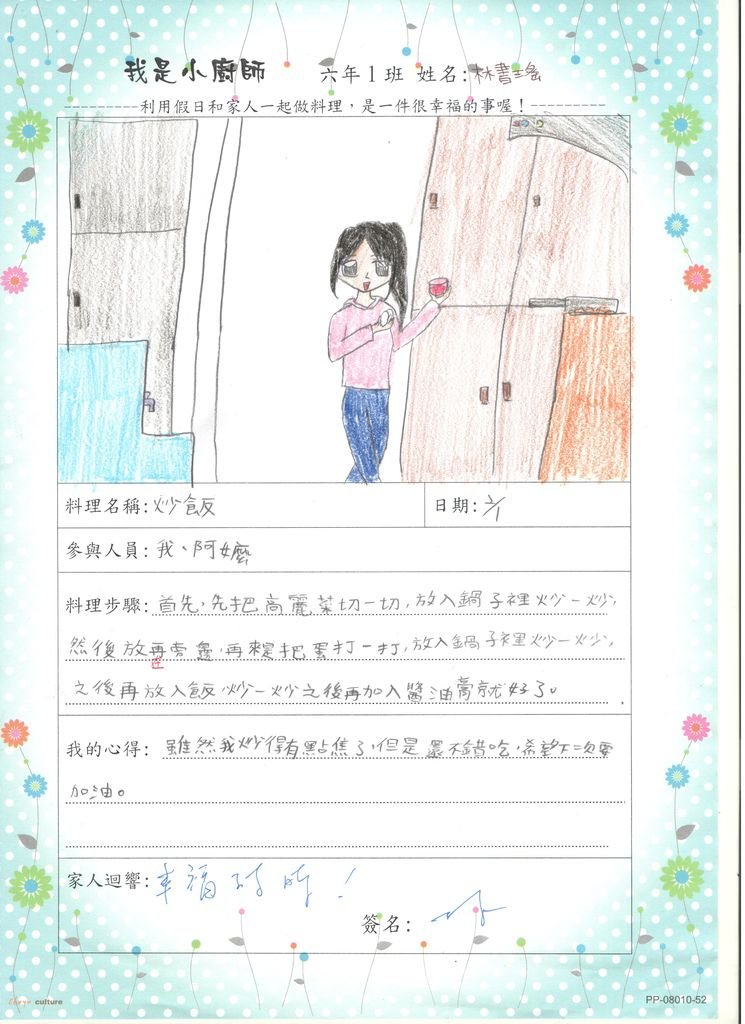 我是小廚師 六年1班 姓名:林書瑤
利用假日和家人一起做料理,是一件很幸福的事喔!
料理名稱:炒飯 日期:2/1
參與人員:我、阿嬤
料理步驟:首先,先把高麗菜切一切,放入鍋子裡炒一炒,
然後放再旁邊,再來是把蛋打一打,放入鍋子裡炒一炒,
在
之後再放入飯炒一炒之後再加入醬油膏就好了。
我的心得:雖然我炒得有點焦了,但是還不錯吃,希望下次要
加油。
家人迴響:幸福 時!
簽名:
culture PP-08010-52